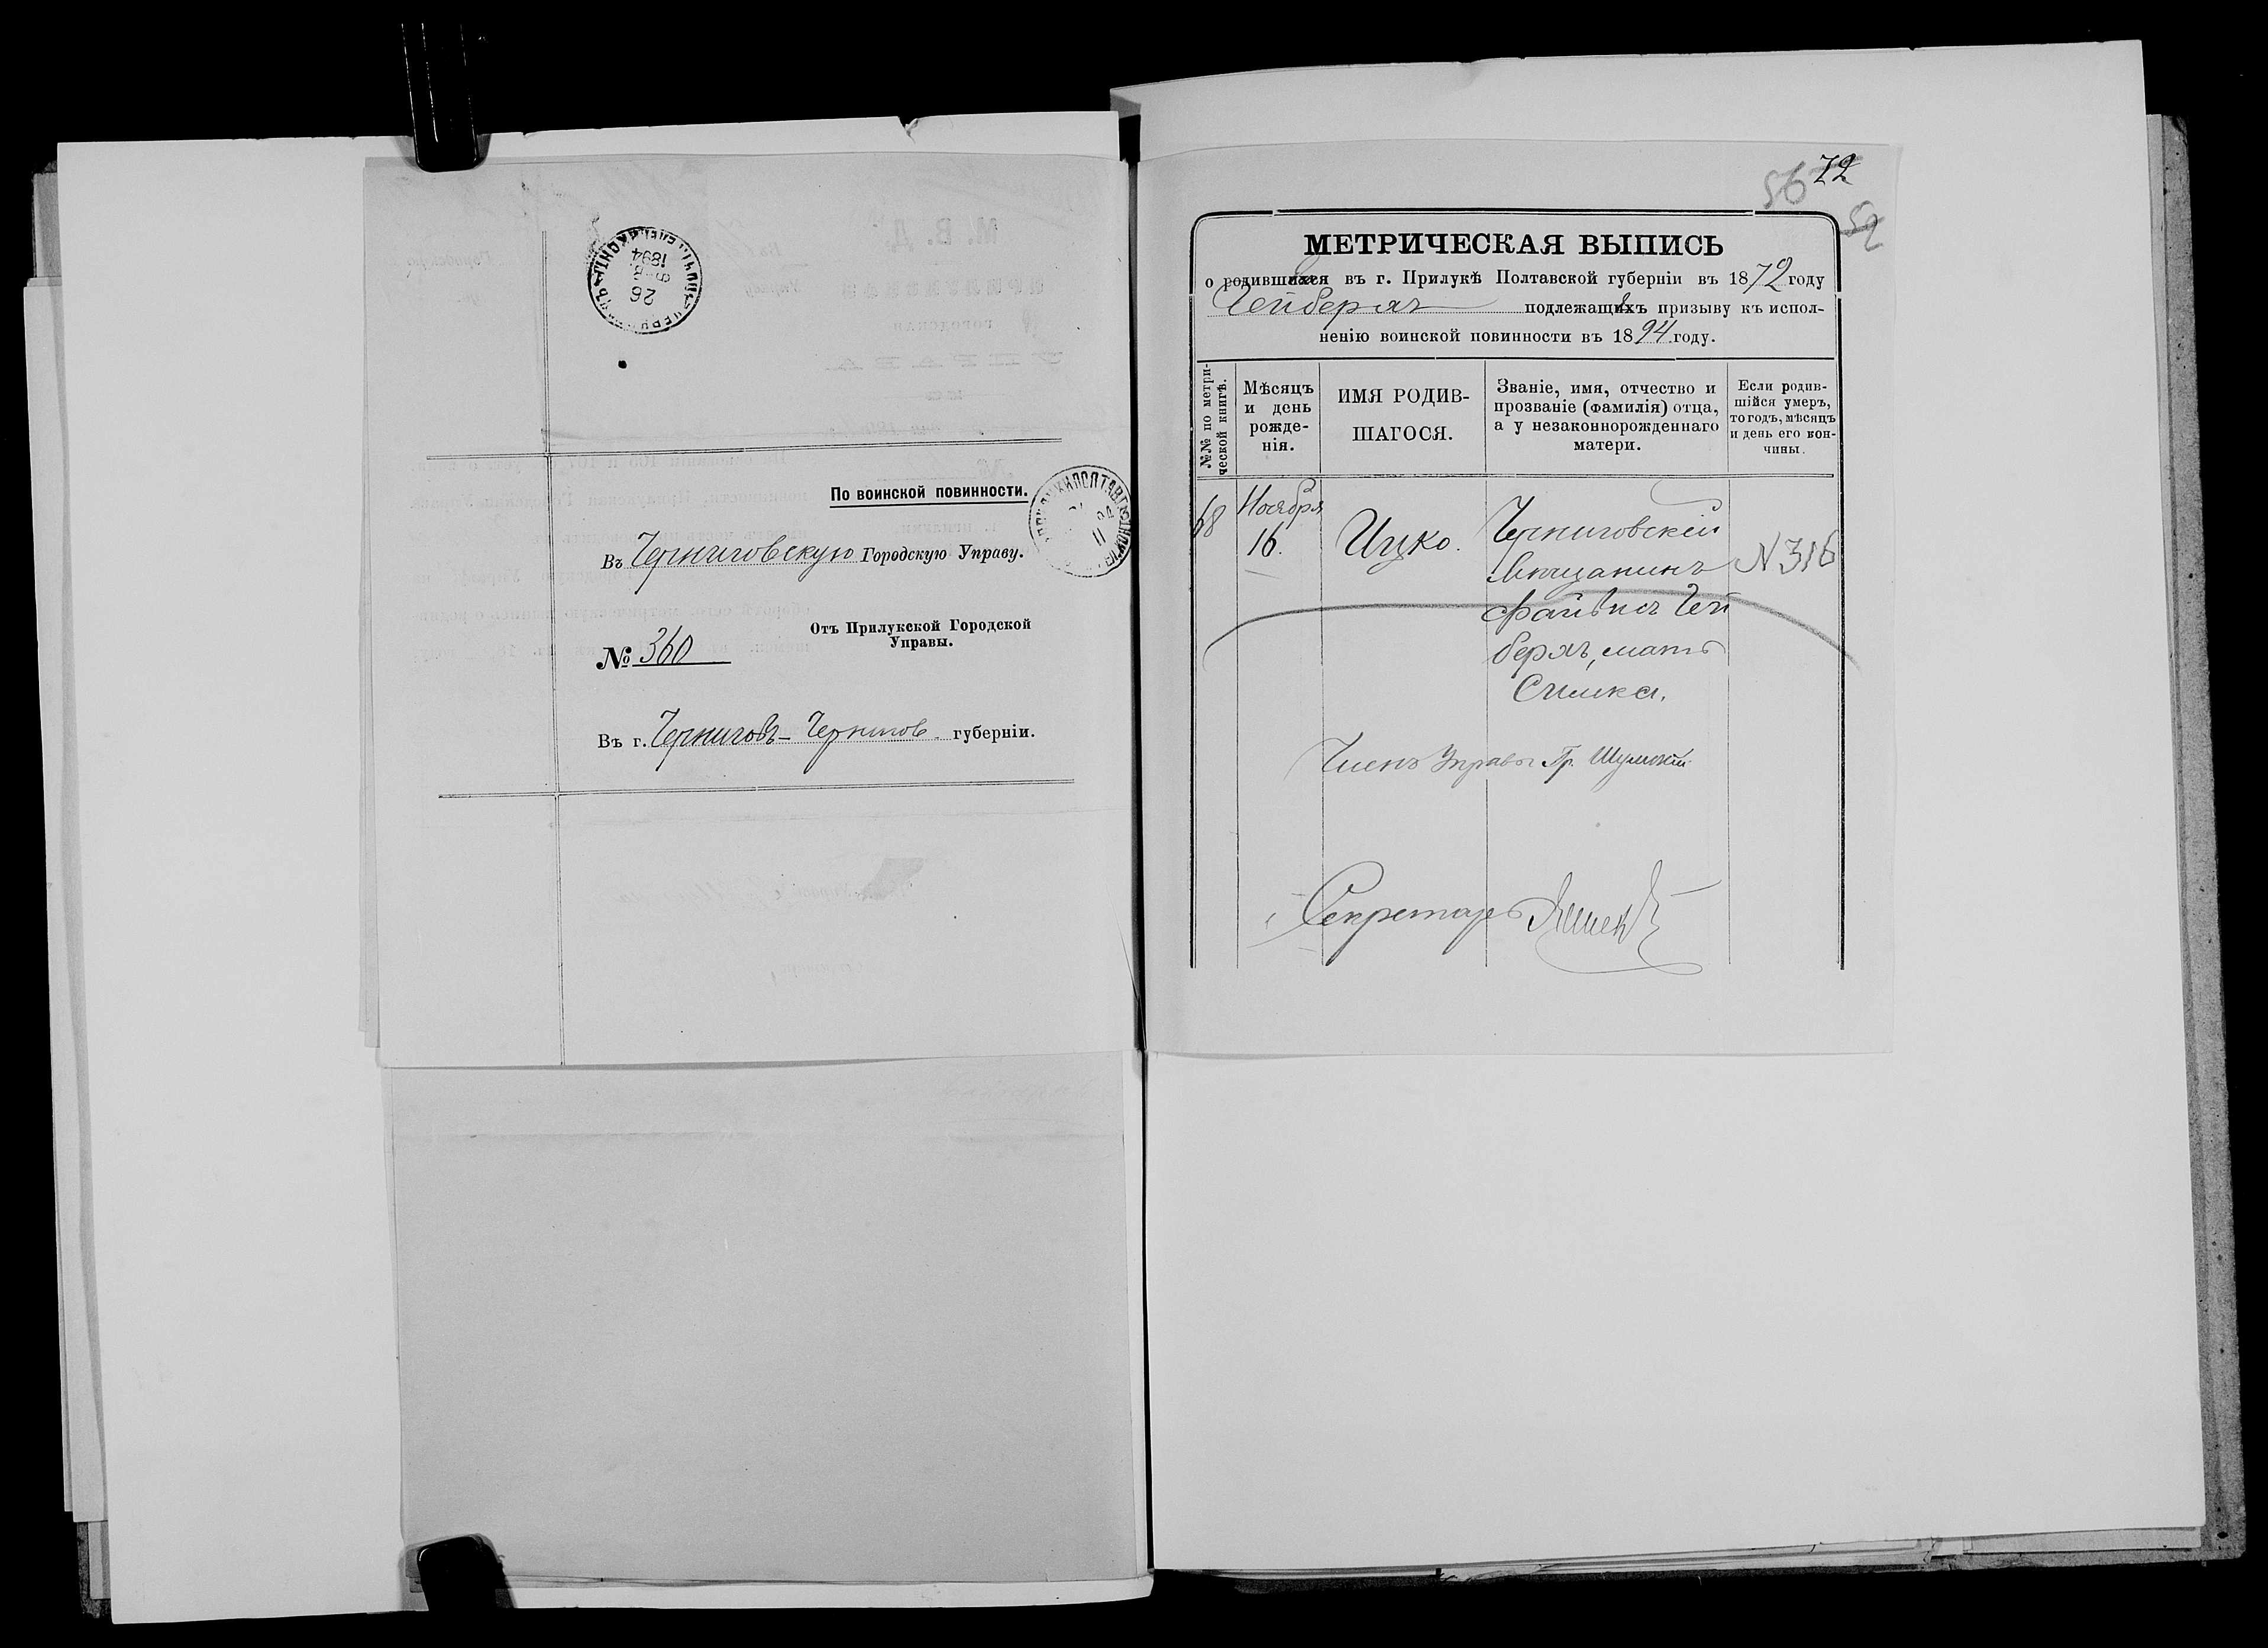 26
1894
По воинской повинности.
Въ Черниговскую Городскую Управу.
Отъ Прилукской Городской
Управы.
№ 360
Въ г. Черниговъ - Чернигов. губерніи.
56 72
52
МЕТРИЧЕСКАЯ ВЫПИСЬ
о родившихся въ г. Прилукѣ Полтавской губерніи въ 1872 году
подлежащихъ призыву къ испол-
ненію воинской повинности въ 1894 году.
№№ по метри-
ческой книгѣ.
Мѣсяцъ
и день
рожде-
нія.
ИМЯ РОДИВ-
ШАГОСЯ.
Званіе, имя, отчество и
прозваніе (фамилія) отца,
а у незаконнорожденнаго
матери.
Если родив-
шійся умеръ,
то годъ, мѣсяцъ
и день его кон-
чины.
68
Ноября
16.
Ицко.
Черниговскій
мѣщанинъ
мать
Симка.
N 316
Членъ Управы Гр.
Секретарь